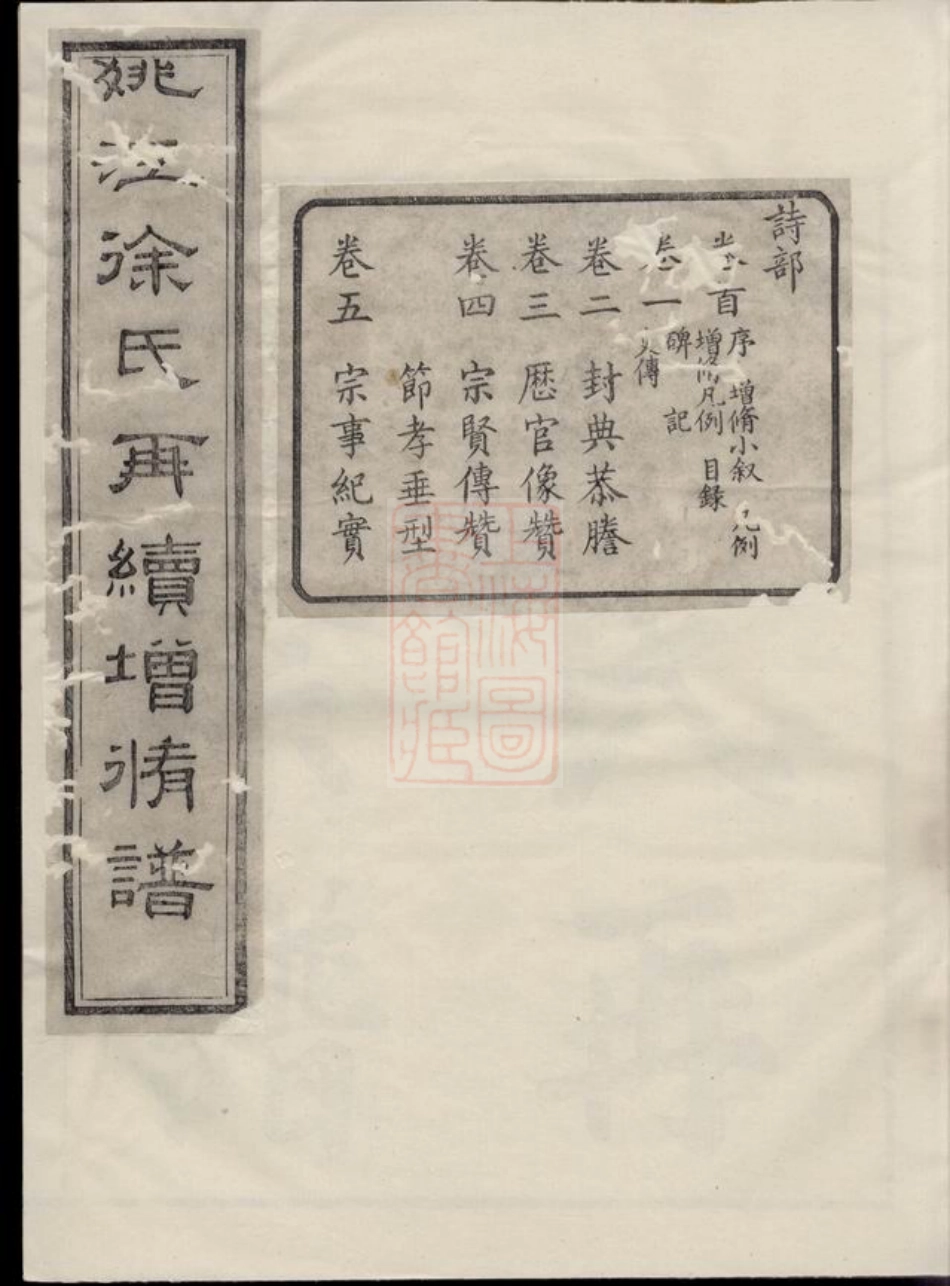 姚江徐氏再續增脩譜
詩部
卷首
序 增脩小叙 凡例
增脩凡例 目錄
卷一
碑記
傳
卷二 封典恭謄
卷三 歷官像贊
卷四 宗賢傳贊
節孝垂型
卷五 宗事紀實
上海圖書館藏